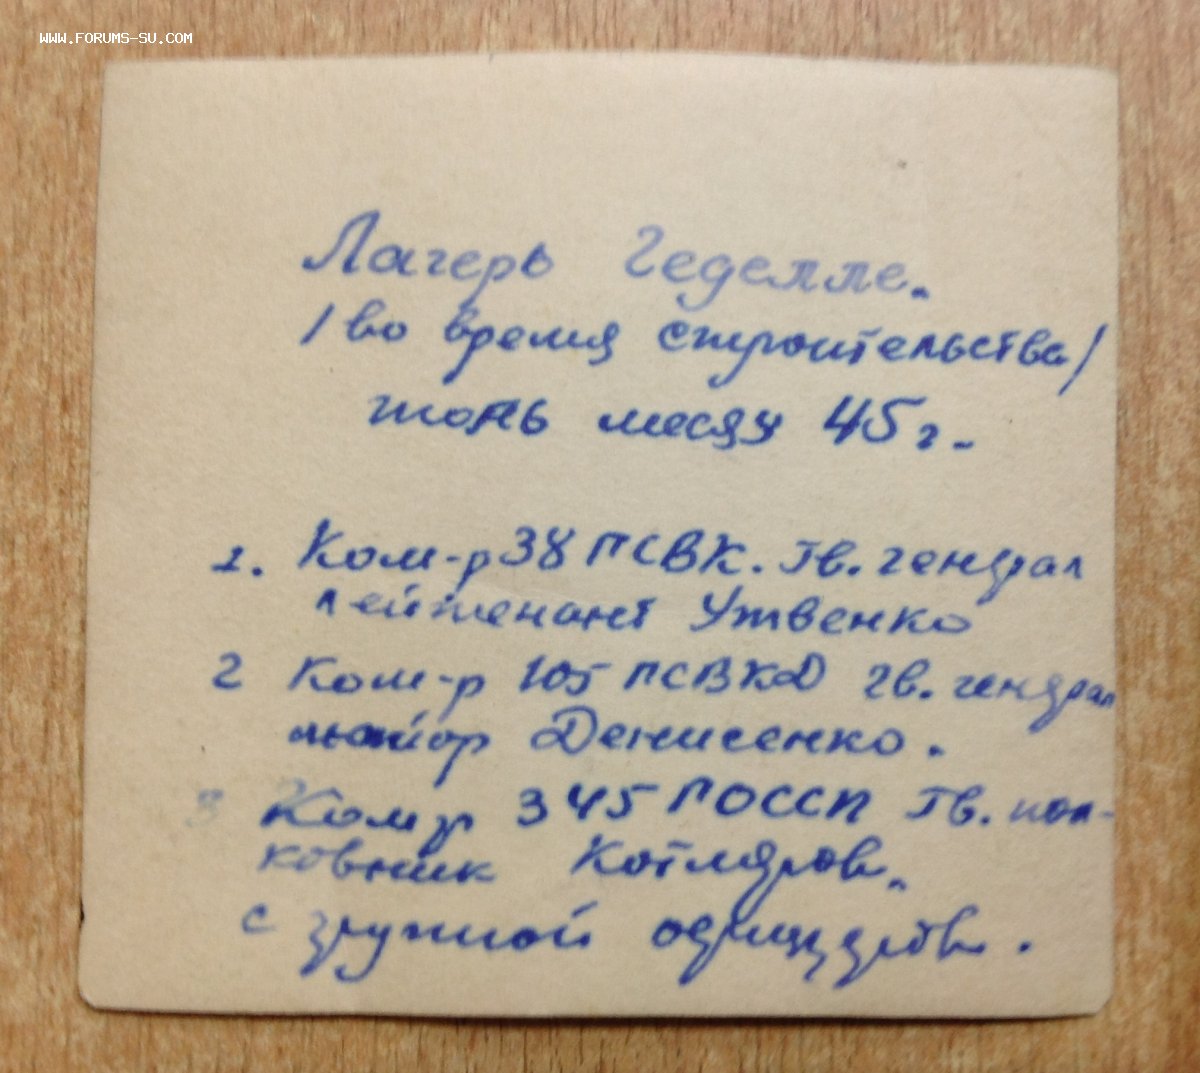 WWW.FORUMS-SU.COM
Лагерь Геделле.
/во время строительства/
июнь месяц 45 г.
1. Ком-р 38 ПСВК. Гв. генерал
лейтенант Утвенко
2 Ком-р 105 ПСВКД гв. генерал
майор Денисенко.
3 Ком-р 345 ГОССП Гв. пол-
ковник Котляров.
с группой офицеров.